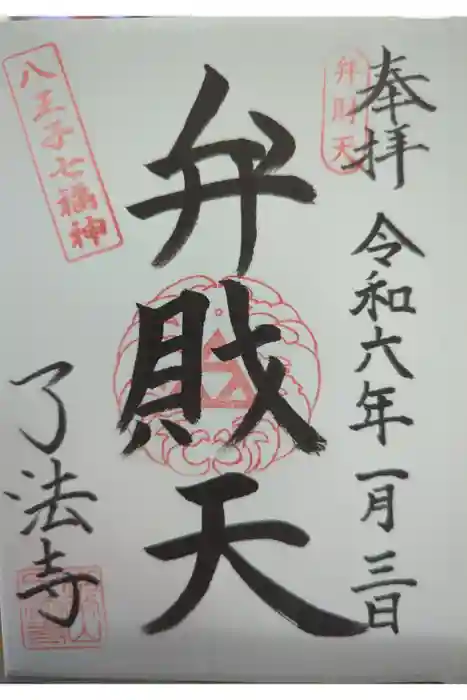 弁財天
奉拝
令和六年一月三日
弁財天
八王子七福神
了法寺